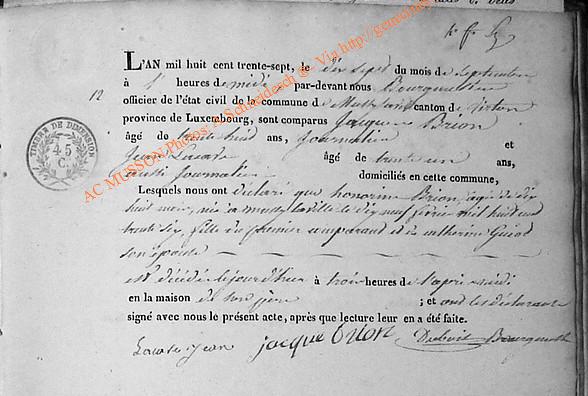 L'AN mil huit cent trente-sept, le dix sept du mois de Septembre
12 à heures de midi par-devant nous
officier de l'état civil de la commune de Musson canton de Virton
province de Luxembourg, sont comparus Jacque Brion
âgé de trente huit ans, Journalier et
Jean âgé de trente un ans,
aussi Journalier domiciliés en cette commune,
Lesquels nous ont déclaré que honorine Brion, âgée de dix
huit mois, née à Mussy la ville le dix neuf mil huit cent
trente six, fille du premier comparant et de catherine
son épouse
est décédée aujourd'hui à trois heures de l'après midi
en la maison de son père ; et ont les déclarants
signé avec nous le présent acte, après que lecture leur en a été faite.
jean jacque brion
TIMBRE DE DIMENSION
45
C.
AC MUSSON Photos: A. Schmidesch © - Via http://